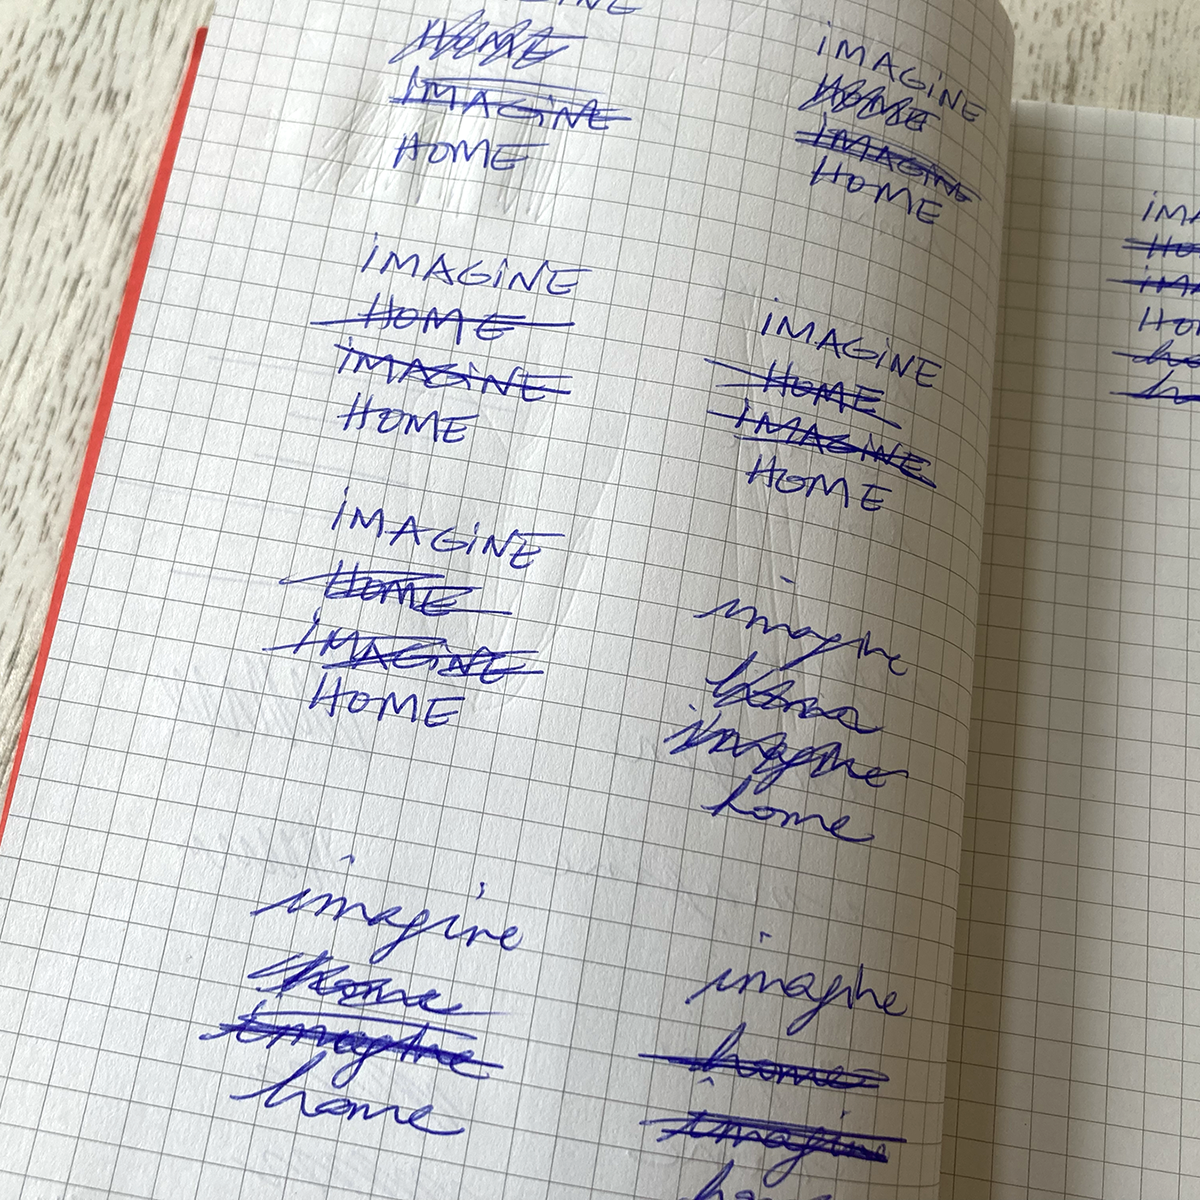 HOME
iMAGiNE
HOME
iMAGiNE
HOME
iMAGiNE
HOME
iMAGiNE
HOME
iMAGiNE
HOME
iMAGiNE
HOME
iMAGiNE
HOME
iMAGiNE
HOME
iMAGiNE
HOME
imagine
home
imagine
home
imagine
home
imagine
home
imagine
home
imagine